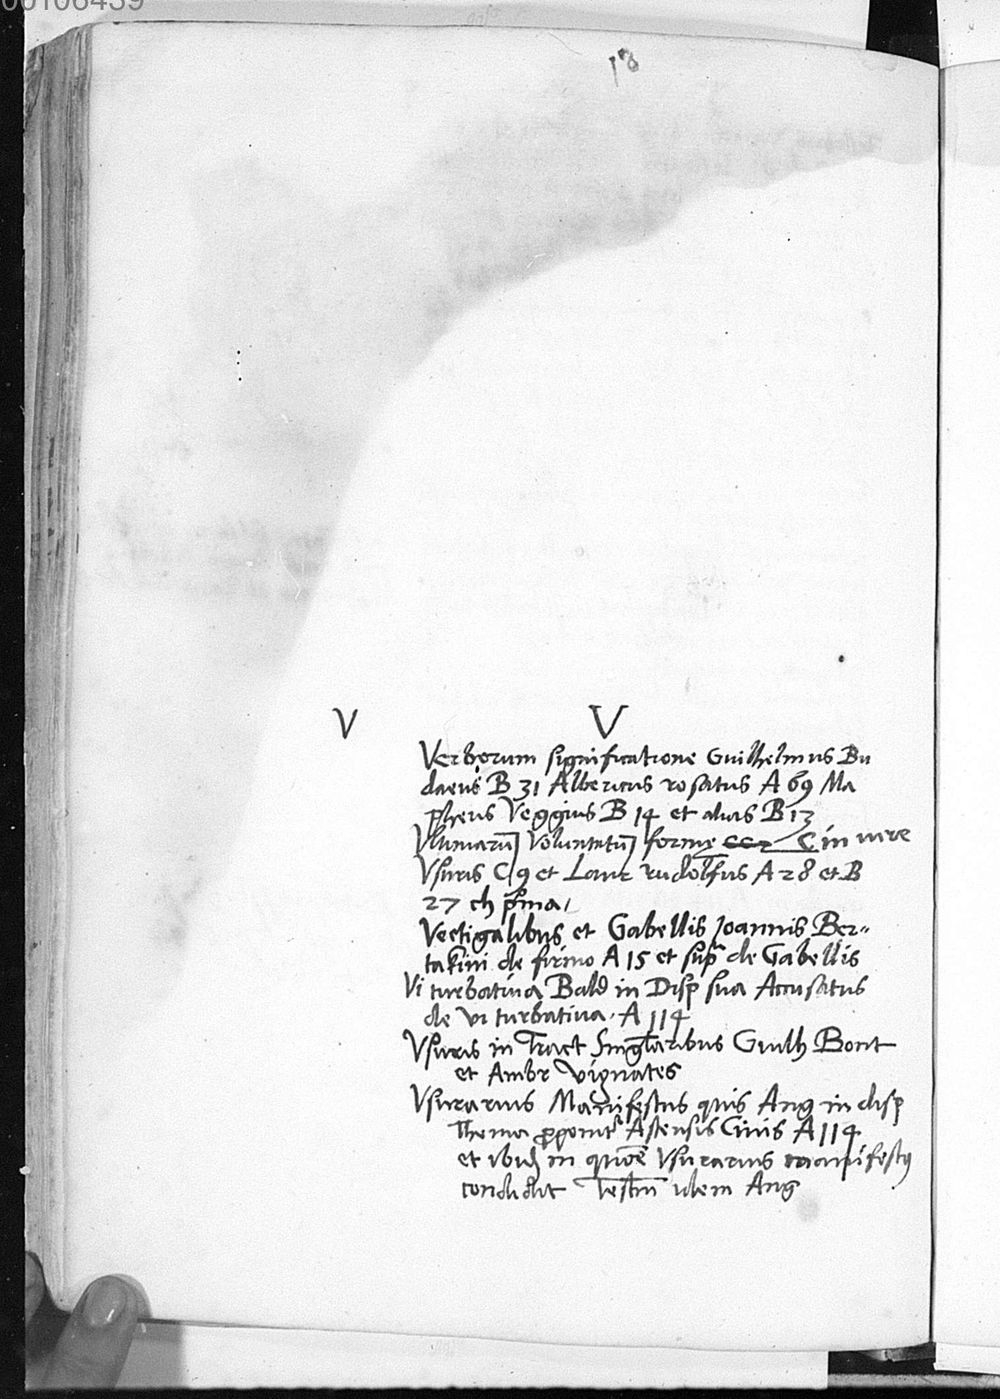 00106439
18
V V
Verborum significatione Guilhelmus Bu
daeus B 31 Albericus rosatus A 69 Ma
pheus Veggius B 14 et alias B 13
Vltimarū Voluntatū forme C in iure
Vsuris C 9 et Laur rudolfus A 28 et B
27 ch pma
Vectigalibus et Gabellis Joannis Ber-
takini de firmo A 15 et sup de Gabellis
Vi turbatiua Bald in Disp sua Accusatus
de vi turbatiua. A 114
Vsuris in Tract Singlaribus Guilh Bont
et Ambr Vignates
Vsurarius Manifestus quis Ang in disp
Thema pponit Astensis Ciuis A 114
et ibid in Vsurarius manifestus
condidit Testm idem Ang